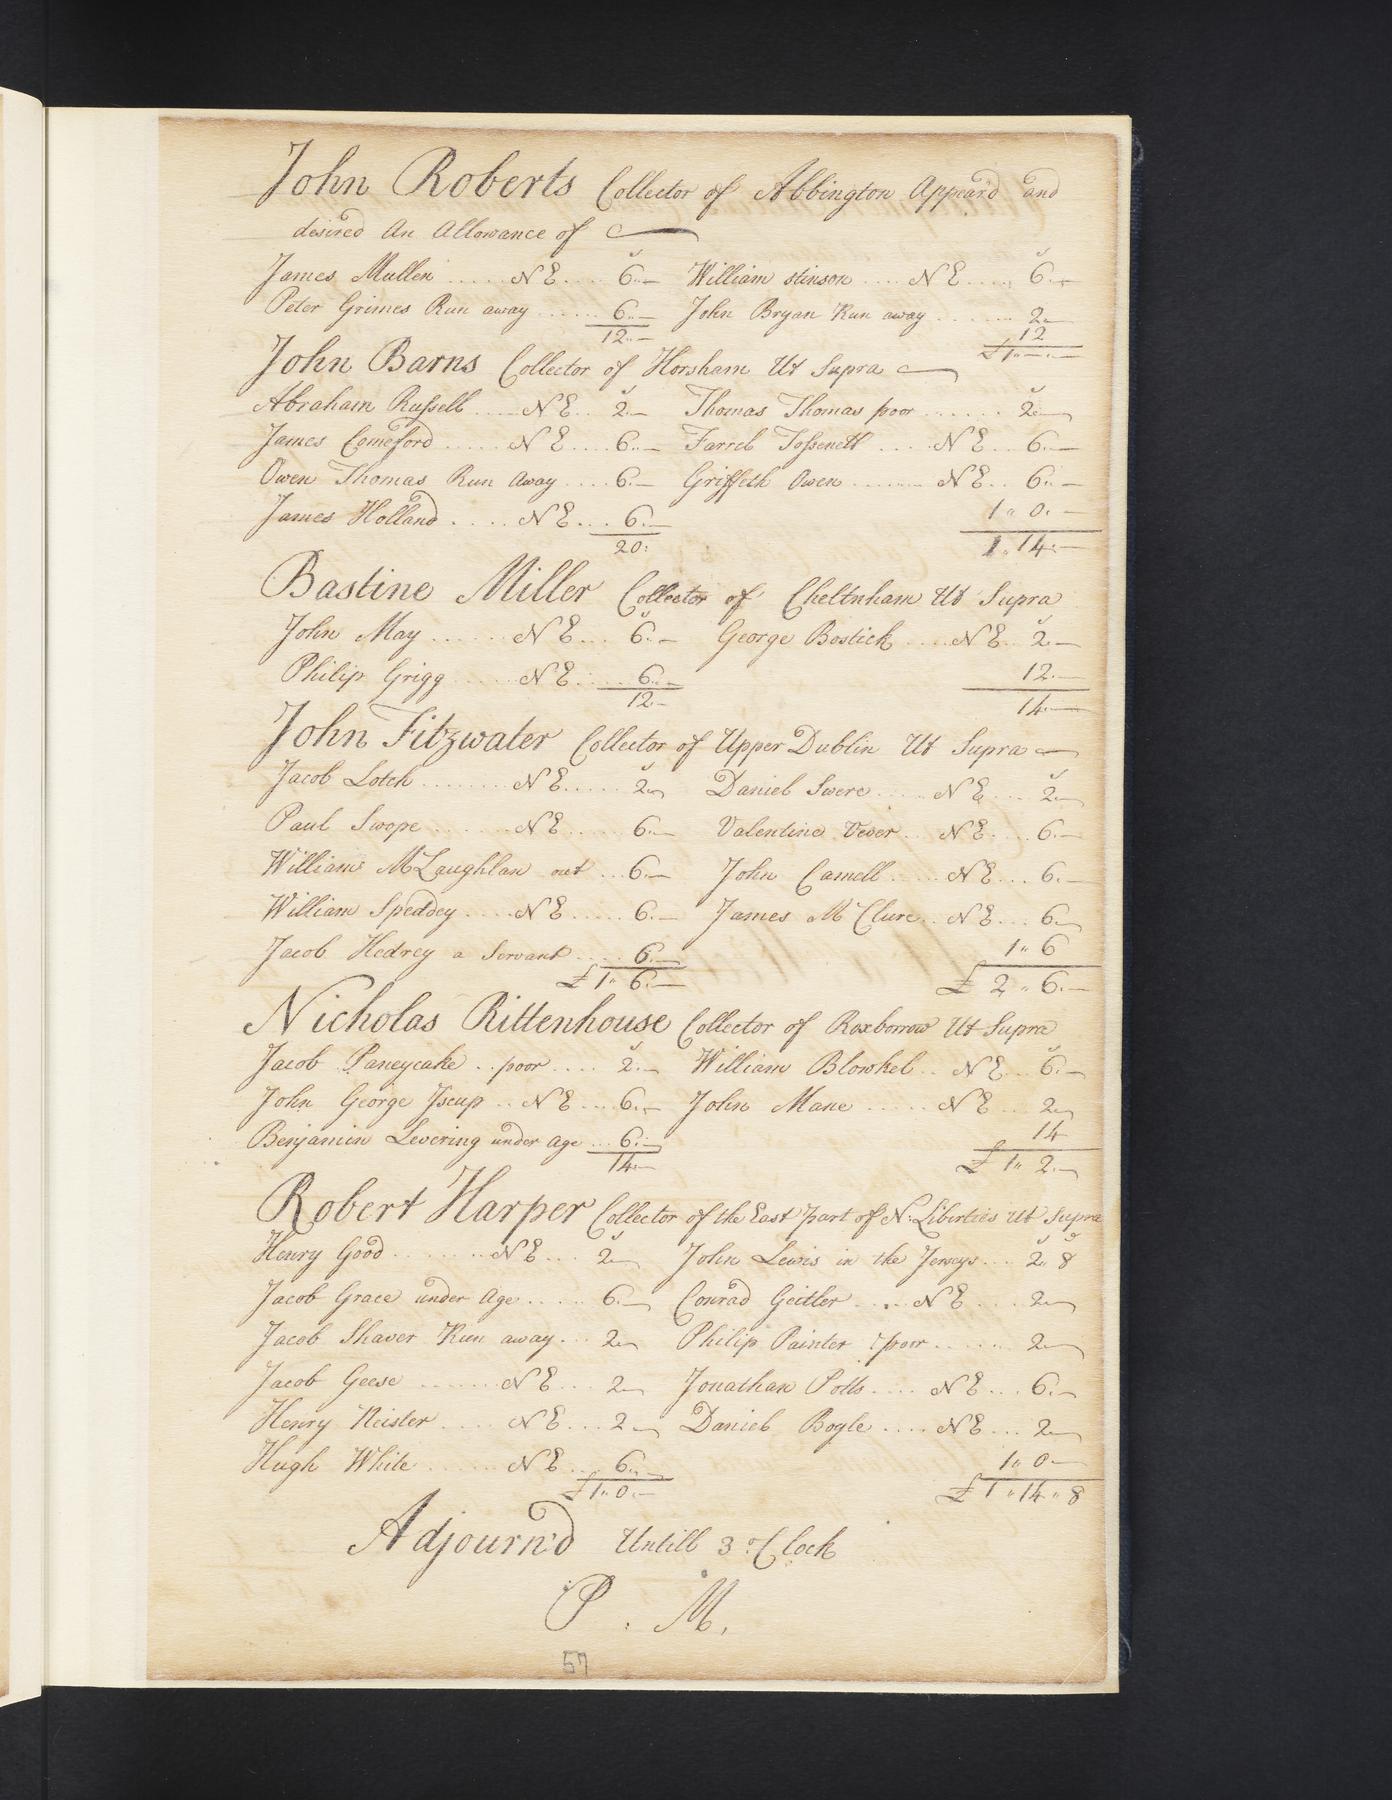 John Roberts Collector of Abbington Appear'd and
desired An Allowance of
James Mullen ...... N E .... 6 .. — William stinson .... N E .... 6 .. —
Peter Grimes Run away ...... 6 .. — John Bryan Run away ....... 2 —
12 .. — 12
£ 1 .. — .. —
John Barns Collector of Horsham Ut Supra
Abraham Russell .... N E .. 2 .. — Thomas Thomas poor ...... 2 —
James Comeford ..... N E .... 6 .. — Farrel Tossenett .... N E .. 6 —
Owen Thomas Run away .... 6 .. — Griffeth Owen ....... N E .. 6 .. —
James Holland .... N E ... 6 .. — 1 .. 0 . —
20 . 1 .. 14 . —
Bastine Miller Collector of Cheltnham Ut Supra
John May ...... N E ... 6 .. — George Bostick .... N E .. 2 —
Philip Grigg ..... N E ..... 6 .. — 12 . —
12 . — 14 —
John Fitzwater Collector of Upper Dublin Ut Supra
Jacob Lotch ........ N E ..... 2 — Daniel Swere ..... N E ... 2 —
Paul Swope ....... N E ...... 6 . — Valentine Vever ... N E .... 6 . —
William McLaughlan out ... 6 . — John Camell ..... N E ... 6 . —
William Speddey .... N E ..... 6 . — James McClure .. N E ... 6 —
Jacob Hedrey a Servant .... 6 . — 1 .. 6
£ 1 .. 6 . — £ 2 .. 6 . —
Nicholas Rittenhouse Collector of Roxborrow Ut Supra
Jacob Paneycake .. poor .... 2 . — William Blowkel .. N E ... 6 . —
John George Jseup .. N E ... 6 . — John Mane ...... N E ... 2 —
Benjamin Levering under age ... 6 . — 14
14 . — £ 1 .. 2 . —
Robert Harper Collector of the East part of N: Liberties Ut Supra
Henry Good ........ N E ... 2 — John Lewis in the Jerseys ... 2 .. 8
Jacob Grace under Age ..... 6 . — Conrad Geitler .... N E .... 2 —
Jacob Shaver Run away ... 2 — Philip Painter poor ....... 2 —
Jacob Geese ....... N E ... 2 — Jonathan Potts .... N E ... 6 . —
Henry Keister ..... N E ... 2 — Daniel Bogle .... N E ... 2 —
Hugh White ....... N E .... 6 .. — 1 .. 0 —
£ 1 .. 0 . — £ 1 .. 14 .. 8
Adjourn'd Untill 3 o'Clock
P . M.
57